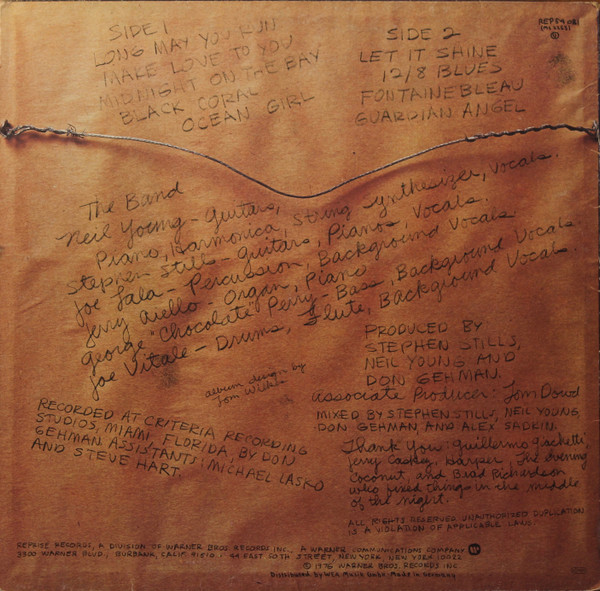 SIDE 1
LONG MAY YOU RUN
MAKE LOVE TO YOU
MIDNIGHT ON THE BAY
BLACK CORAL
OCEAN GIRL
SIDE 2
LET IT SHINE
12/8 BLUES
FONTAINEBLEAU
GUARDIAN ANGEL
REP 54 081
(MS 2253)
The Band
Neil Young - Guitars,
Piano, Harmonica, String Synthesizer, Vocals.
Stephen Stills - Guitars, Pianos, Vocals.
Joe Lala - Percussion, Background Vocals
Jerry Aiello - Organ, Piano
George "Chocolate" Perry - Bass, Background Vocals
Joe Vitale - Drums, Flute, Background Vocals.
album design by
Tom Wilkes
PRODUCED BY
STEPHEN STILLS,
NEIL YOUNG AND
DON GEHMAN.
Associate Producer: Tom Dowd
MIXED BY STEPHEN STILLS, NEIL YOUNG,
DON GEHMAN, AND ALEX SADKIN.
RECORDED AT CRITERIA RECORDING
STUDIOS, MIAMI, FLORIDA, BY DON
GEHMAN ASSISTANTS: MICHAEL LASKO
AND STEVE HART.
Thank You: Guillermo Giachetti,
Jerry Caskey, Harper, The evening
Coconut, and Brad Richardson
who fixed things in the middle
of the night.
ALL RIGHTS RESERVED UNAUTHORIZED DUPLICATION
IS A VIOLATION OF APPLICABLE LAWS
REPRISE RECORDS, A DIVISION OF WARNER BROS. RECORDS INC., A WARNER COMMUNICATIONS COMPANY
3300 WARNER BLVD., BURBANK, CALIF. 91510 · 44 EAST 50TH STREET, NEW YORK, NEW YORK 10022
© 1976 WARNER BROS. RECORDS INC
Distributed by WEA Musik GmbH · Made in Germany